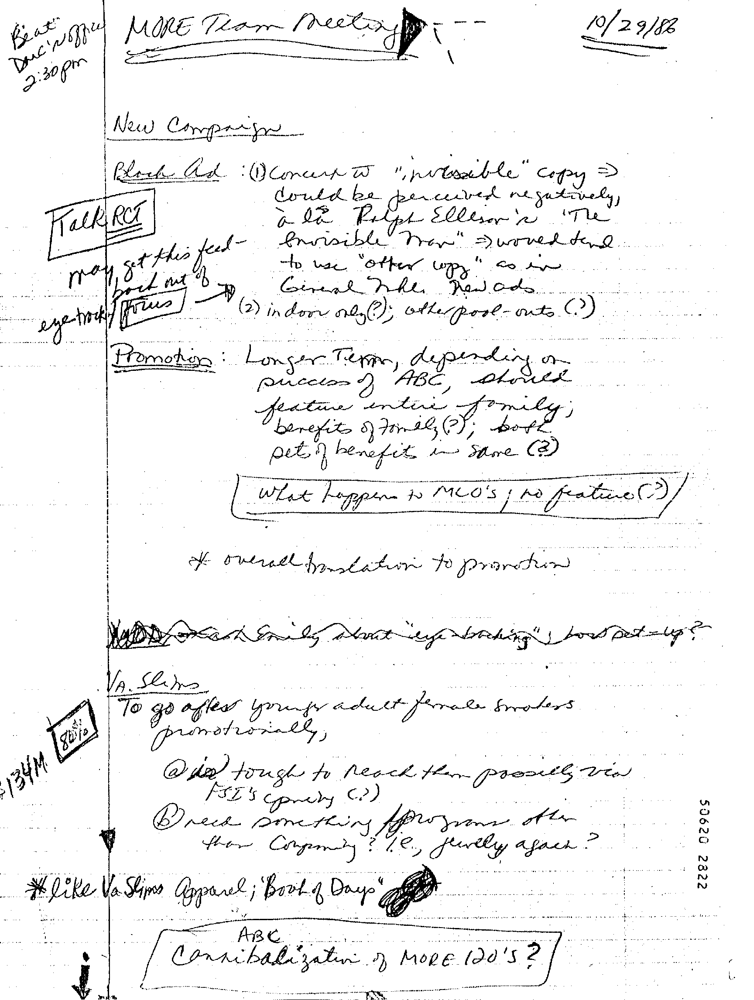 Be at
Dave's office
2:30pm
MORE Team Meeting
10/29/86
New Campaign
Black Ad : (1) Concern w "invisible" copy ⇒
could be perceived negatively,
à lá Ralph Ellison's 'The
Invisible Man" ⇒ would tend
to use "other copy" as in
General new ads
(2) indoor only(?); other pool-outs (?)
Talk RCT
may get this feed-
back out of
eye track/focus
Promotion: Longer Term, depending on
success of ABC, should
feature entire family;
benefits of family(?); both
sets of benefits in same (?)
What happens to MLO's; no feature(?)
* overall translation to promotion
Ask Emily about "eye-tracking"; how set-up?
Va. Slims
To go after younger adult female smokers
promotionally,
80%
$134M
(a) tough to reach them possibly via
FSI's (?)
(b) need something/programs other
than Couponing? i.e., jewelry again?
* like Va Slims Apparel; "Book of Days"
ABC
Cannibalization of MORE 120'S?
50620 2822